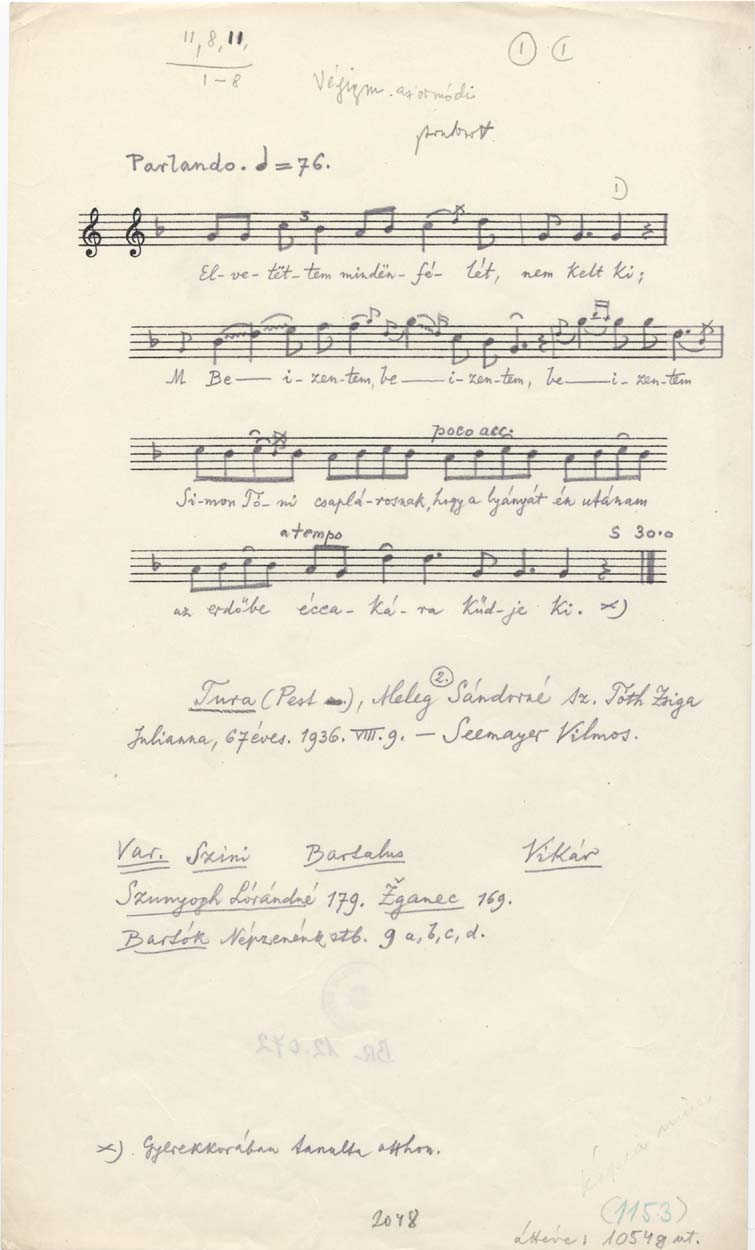 11, 8, 11,
1-8
① 1
Végigm.
Parlando. ♩=76.
1)
3
El-ve-tët-tem mindën-fé-lét, nem kelt ki;
M Be— i-zen-tem, be— i-zen-tem, be— i-zen-tem
poco acc:
Si-mon Tó-ni csaplá-rosnak, hogy a lyányát én utánam
a tempo S 30.0
az erdőbe écca-ká-ra Küd-je Ki. x)
2.
Tura (Pest m.), Meleg Sándorné sz. Tóth Zsiga
Julianna, 67 éves. 1936. VIII. 9. — Seemayer Vilmos.
Var. Szini Bartalus Vikár
Szunyogh Lórándné 179. Žganec 169.
Bartók Népzenénk stb. 9 a, b, c, d.
BR. 12.072
x) Gyerekkorában tanulta otthon.
kópia nincs
(1153)
2048
áttéve: 10548 ut.